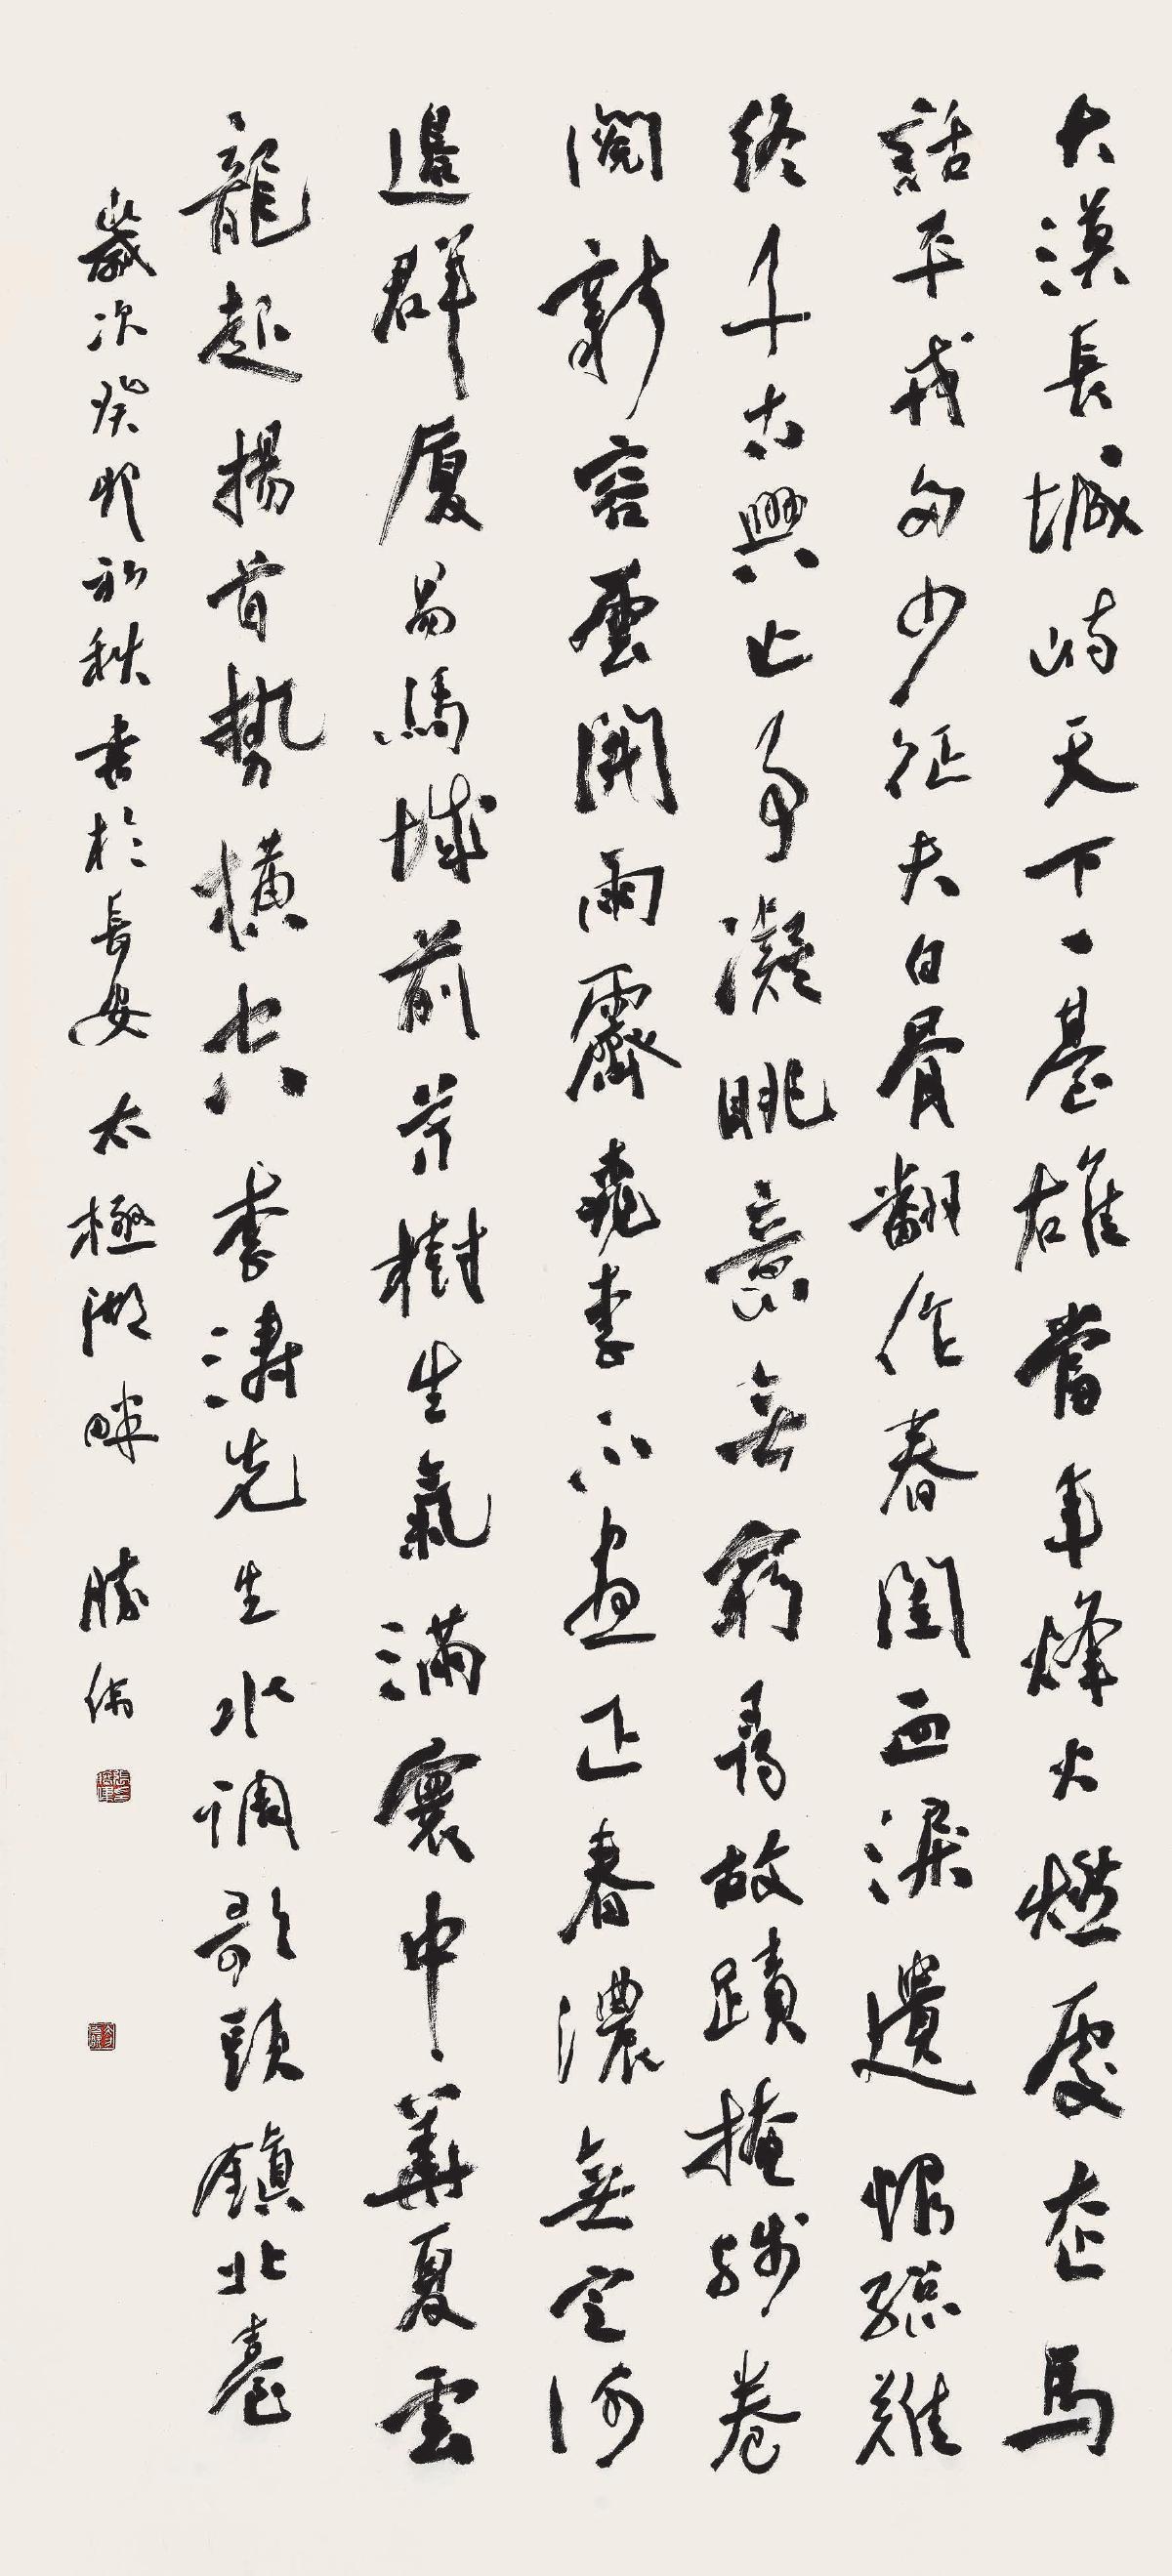 大漠長城峙天下一臺雄當年烽火燃處走馬
話平戎多少征夫白骨翻作春閨血淚遺恨總難
終千古興亡事凝眺意無窮尋故蹟掩殘卷
閱新容雲開雨霽桃李不盡正春濃無定河
邊群廈易馬城前芳樹生氣滿寰中華夏雲
龍起揚首勢橫空李濤先生水調歌頭鎮北臺
歲次癸卯初秋書於長安太極湖畔勝偉